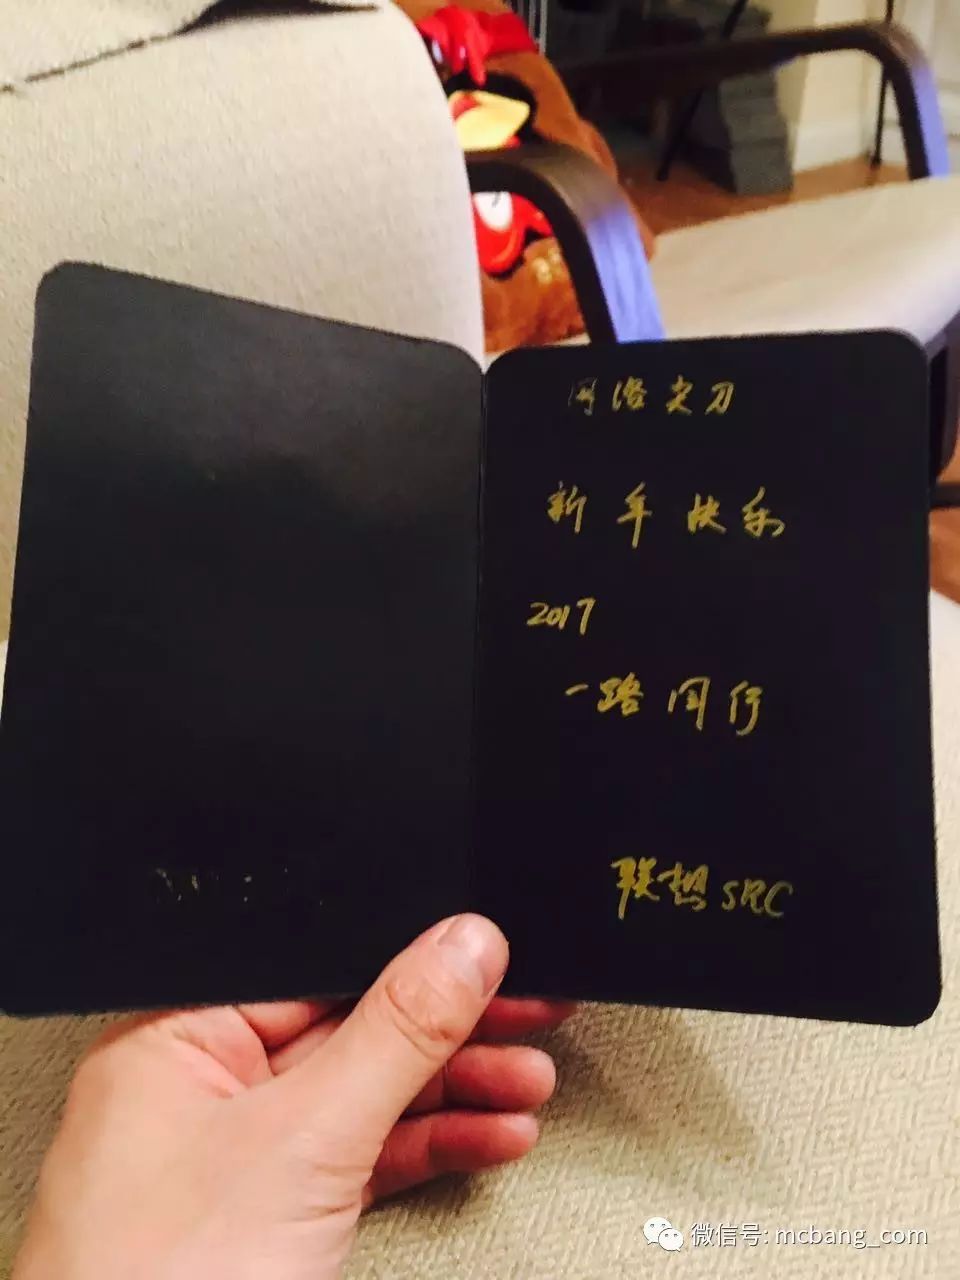 网络尖刀
新年快乐
2017
一路同行
联想SRC
微信号: mcbang_com